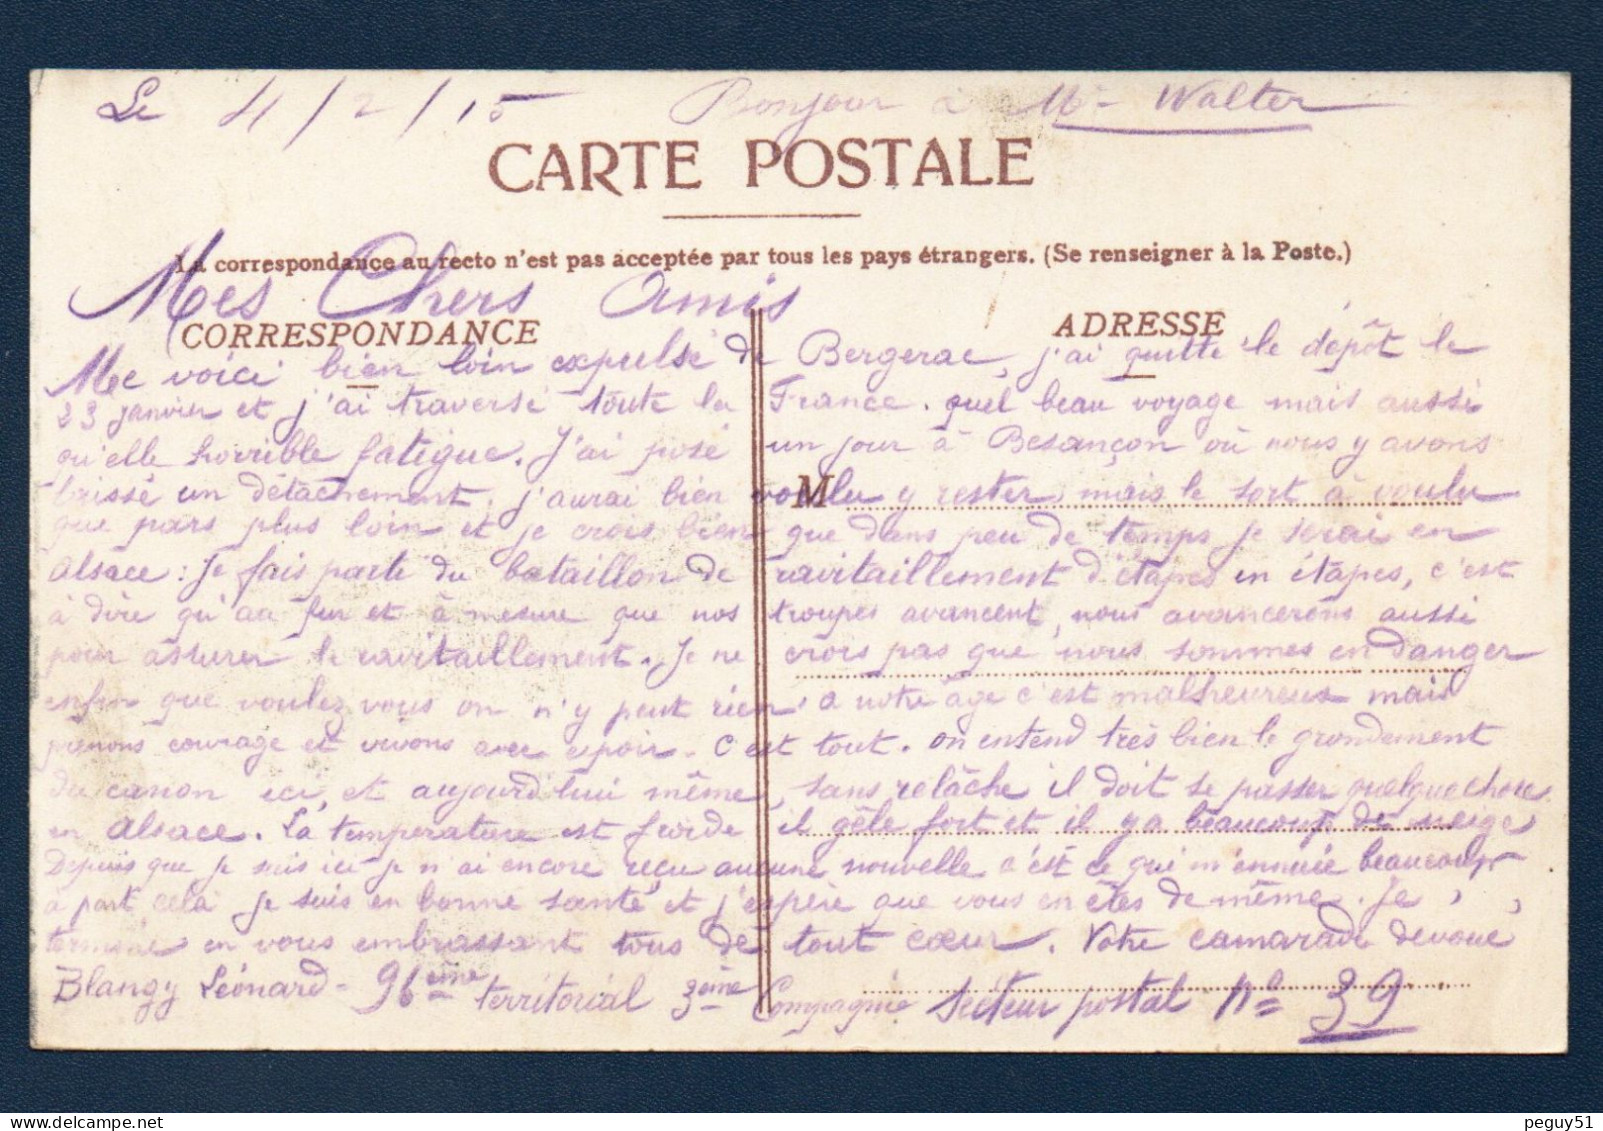 Le 4/2/15 Bonjour à Mr Walter
CARTE POSTALE
La correspondance au recto n'est pas acceptée par tous les pays étrangers. (Se renseigner à la Poste.)
Mes Chers Amis
CORRESPONDANCE ADRESSE
Me voici bien loin expulsé de Bergerac, j'ai quitté le dépôt le
23 janvier et j'ai traversé toute la France. quel beau voyage mais aussi
qu'elle horrible fatigue. J'ai posé un jour à Besançon où nous y avons
laissé un détachement, j'aurai bien voulu y rester, mais le sort à voulu
M
que pars plus loin et je crois bien que dans peu de temps je serai en
Alsace: Je fais partie du bataillon de ravitaillement d'étapes en étapes, c'est
à dire qu'au fur et à mesure que nos troupes avancent, nous avancerons aussi
pour assurer le ravitaillement. Je ne crois pas que nous sommes en danger
enfin que voulez vous on n'y peut rien, a notre âge c'est malheureux mais
prenons courage et vivons avec espoir. C'est tout. on entend très bien le grondement
du canon ici, et aujourd'hui même, sans relâche il doit se passer quelque chose
en Alsace. La température est froide il gèle fort et il y a beaucoup de neige
Depuis que je suis ici je n'ai encore reçu aucune nouvelle c'est ce qui m'ennuie beaucoup
a part cela je suis en bonne santé et j'espère que vous en êtes de même. Je
termine en vous embrassant tous de tout cœur. Votre camarade devoué
Blangy Léonard - 96eme territorial 3ème Compagnie Secteur postal no 39
peguy51